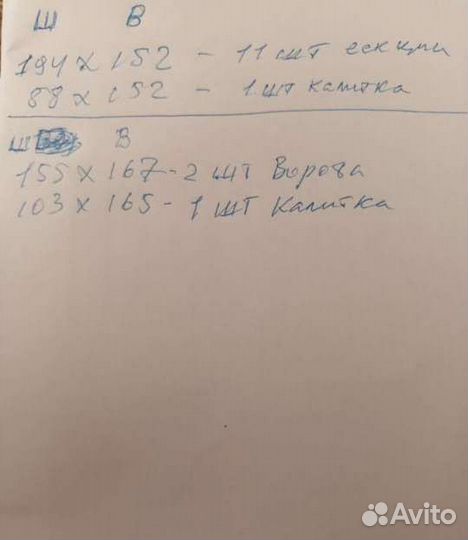 Ш В
194 х 152 - 11 шт секции
88 х 152 - 1 шт калитка
Ш В
155 х 167 - 2 шт Ворота
103 х 165 - 1 шт Калитка
Avito